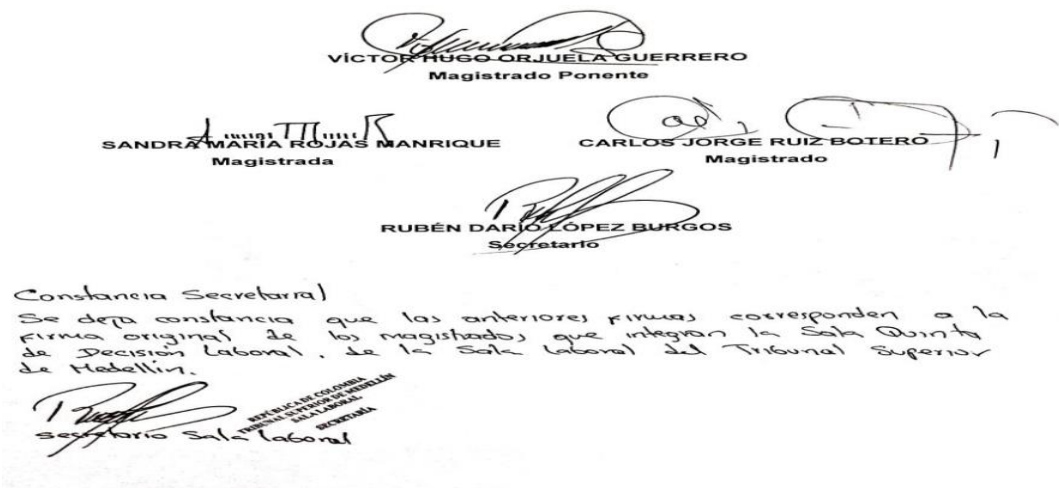 VÍCTOR HUGO ORJUELA GUERRERO
Magistrado Ponente
SANDRA MARÍA ROJAS MANRIQUE
Magistrada
CARLOS JORGE RUIZ BOTERO
Magistrado
RUBÉN DARÍO LÓPEZ BURGOS
Secretario
Constancia Secretarial
Se deja constancia que las anteriores firmas corresponden a la
firma original de los magistrados que integran la Sala Quinta
de Decisión Laboral, de la Sala Laboral del Tribunal Superior
de Medellín.
REPÚBLICA DE COLOMBIA
TRIBUNAL SUPERIOR DE MEDELLÍN
SALA LABORAL
SECRETARÍA
Secretario Sala Laboral